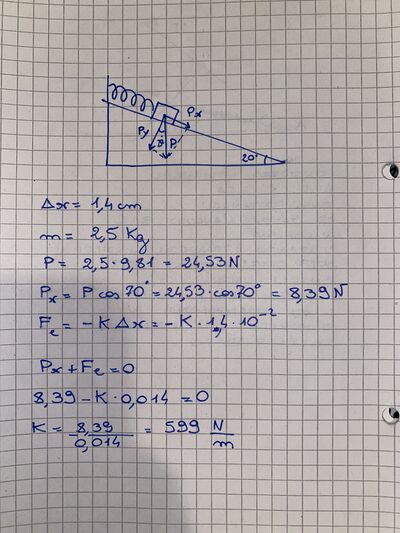 Px
Py
P
20°
Δx = 1,4 cm
m = 2,5 Kg
P = 2,5 · 9,81 = 24,53 N
Px = P cos 70° = 24,53 · cos 70° = 8,39 N
Fe = -K Δx = -K · 1,4 · 10⁻²
Px + Fe = 0
8,39 - K · 0,014 = 0
K = 8,39 / 0,014 = 599 N/m